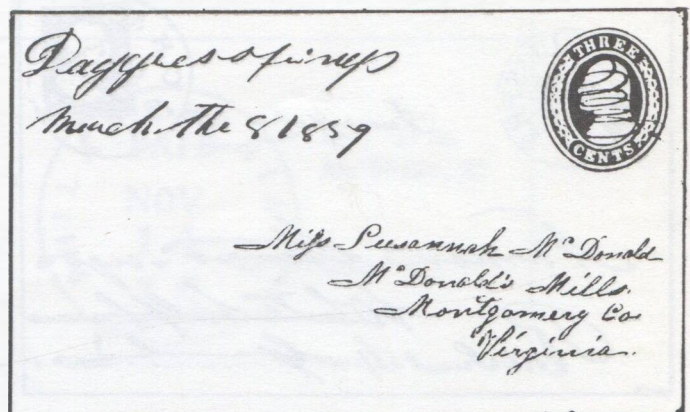 Daggers Springs
March the 8 1859
THREE
CENTS
Miss Susannah McDonald
McDonald's Mills.
Montgomery Co
Virginia.